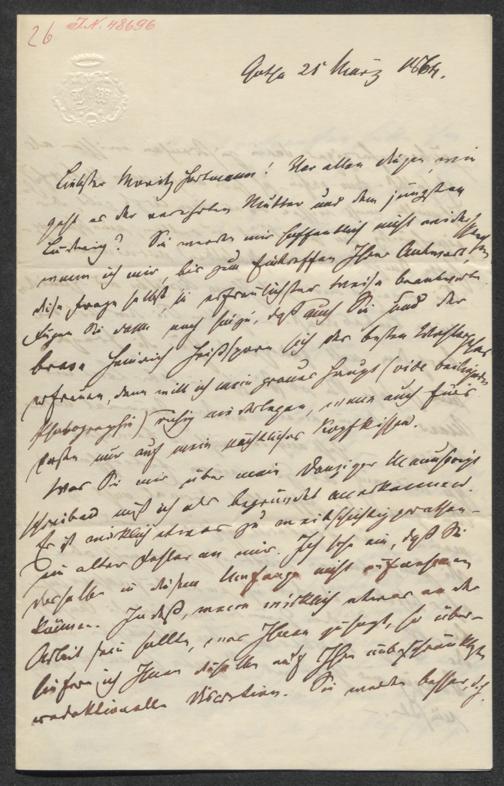 26 I.N. 48696
Gotha 25 März 1864.
Liebster Moritz Hartmann! Vor allen Dingen, wie
geht es der verehrten Mutter und dem jüngsten
Ludwig? Sie werden mir hoffentlich nicht
wenn ich mir, bis zum Eintreffen Ihrer Antwort,
diese Frage selbst, in erfreulichster Weise beantworte.
Fügen Sie dann noch hinzu, daß auch Sie und der
brave Heinrich sich der besten
erfreuen, dann will ich mein graues Haupt (vide beiliegende
Photographie) ruhig niederlegen, wenn auch fürs
Erste nur auf mein nächtliches Kopfkissen.
Was Sie mir über mein Danziger Manuscript
schreiben muß ich als begründet anerkennen.
Es ist wirklich etwas zu weitschichtig gerathen –
ein alter Fehler an mir. Ich sehe ein, daß Sie
dasselbe in diesem Umfange nicht aufnehmen
können. Indeß, wenn wirklich etwas an der
Arbeit sein sollte, was Ihnen zusagt, so über-
liefere ich Ihnen dieselbe auf Ihre unbeschränkteste
redaktionelle Discretion. Sie werden besser, als